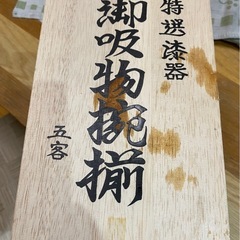 特選漆器
御吸物椀揃
五客